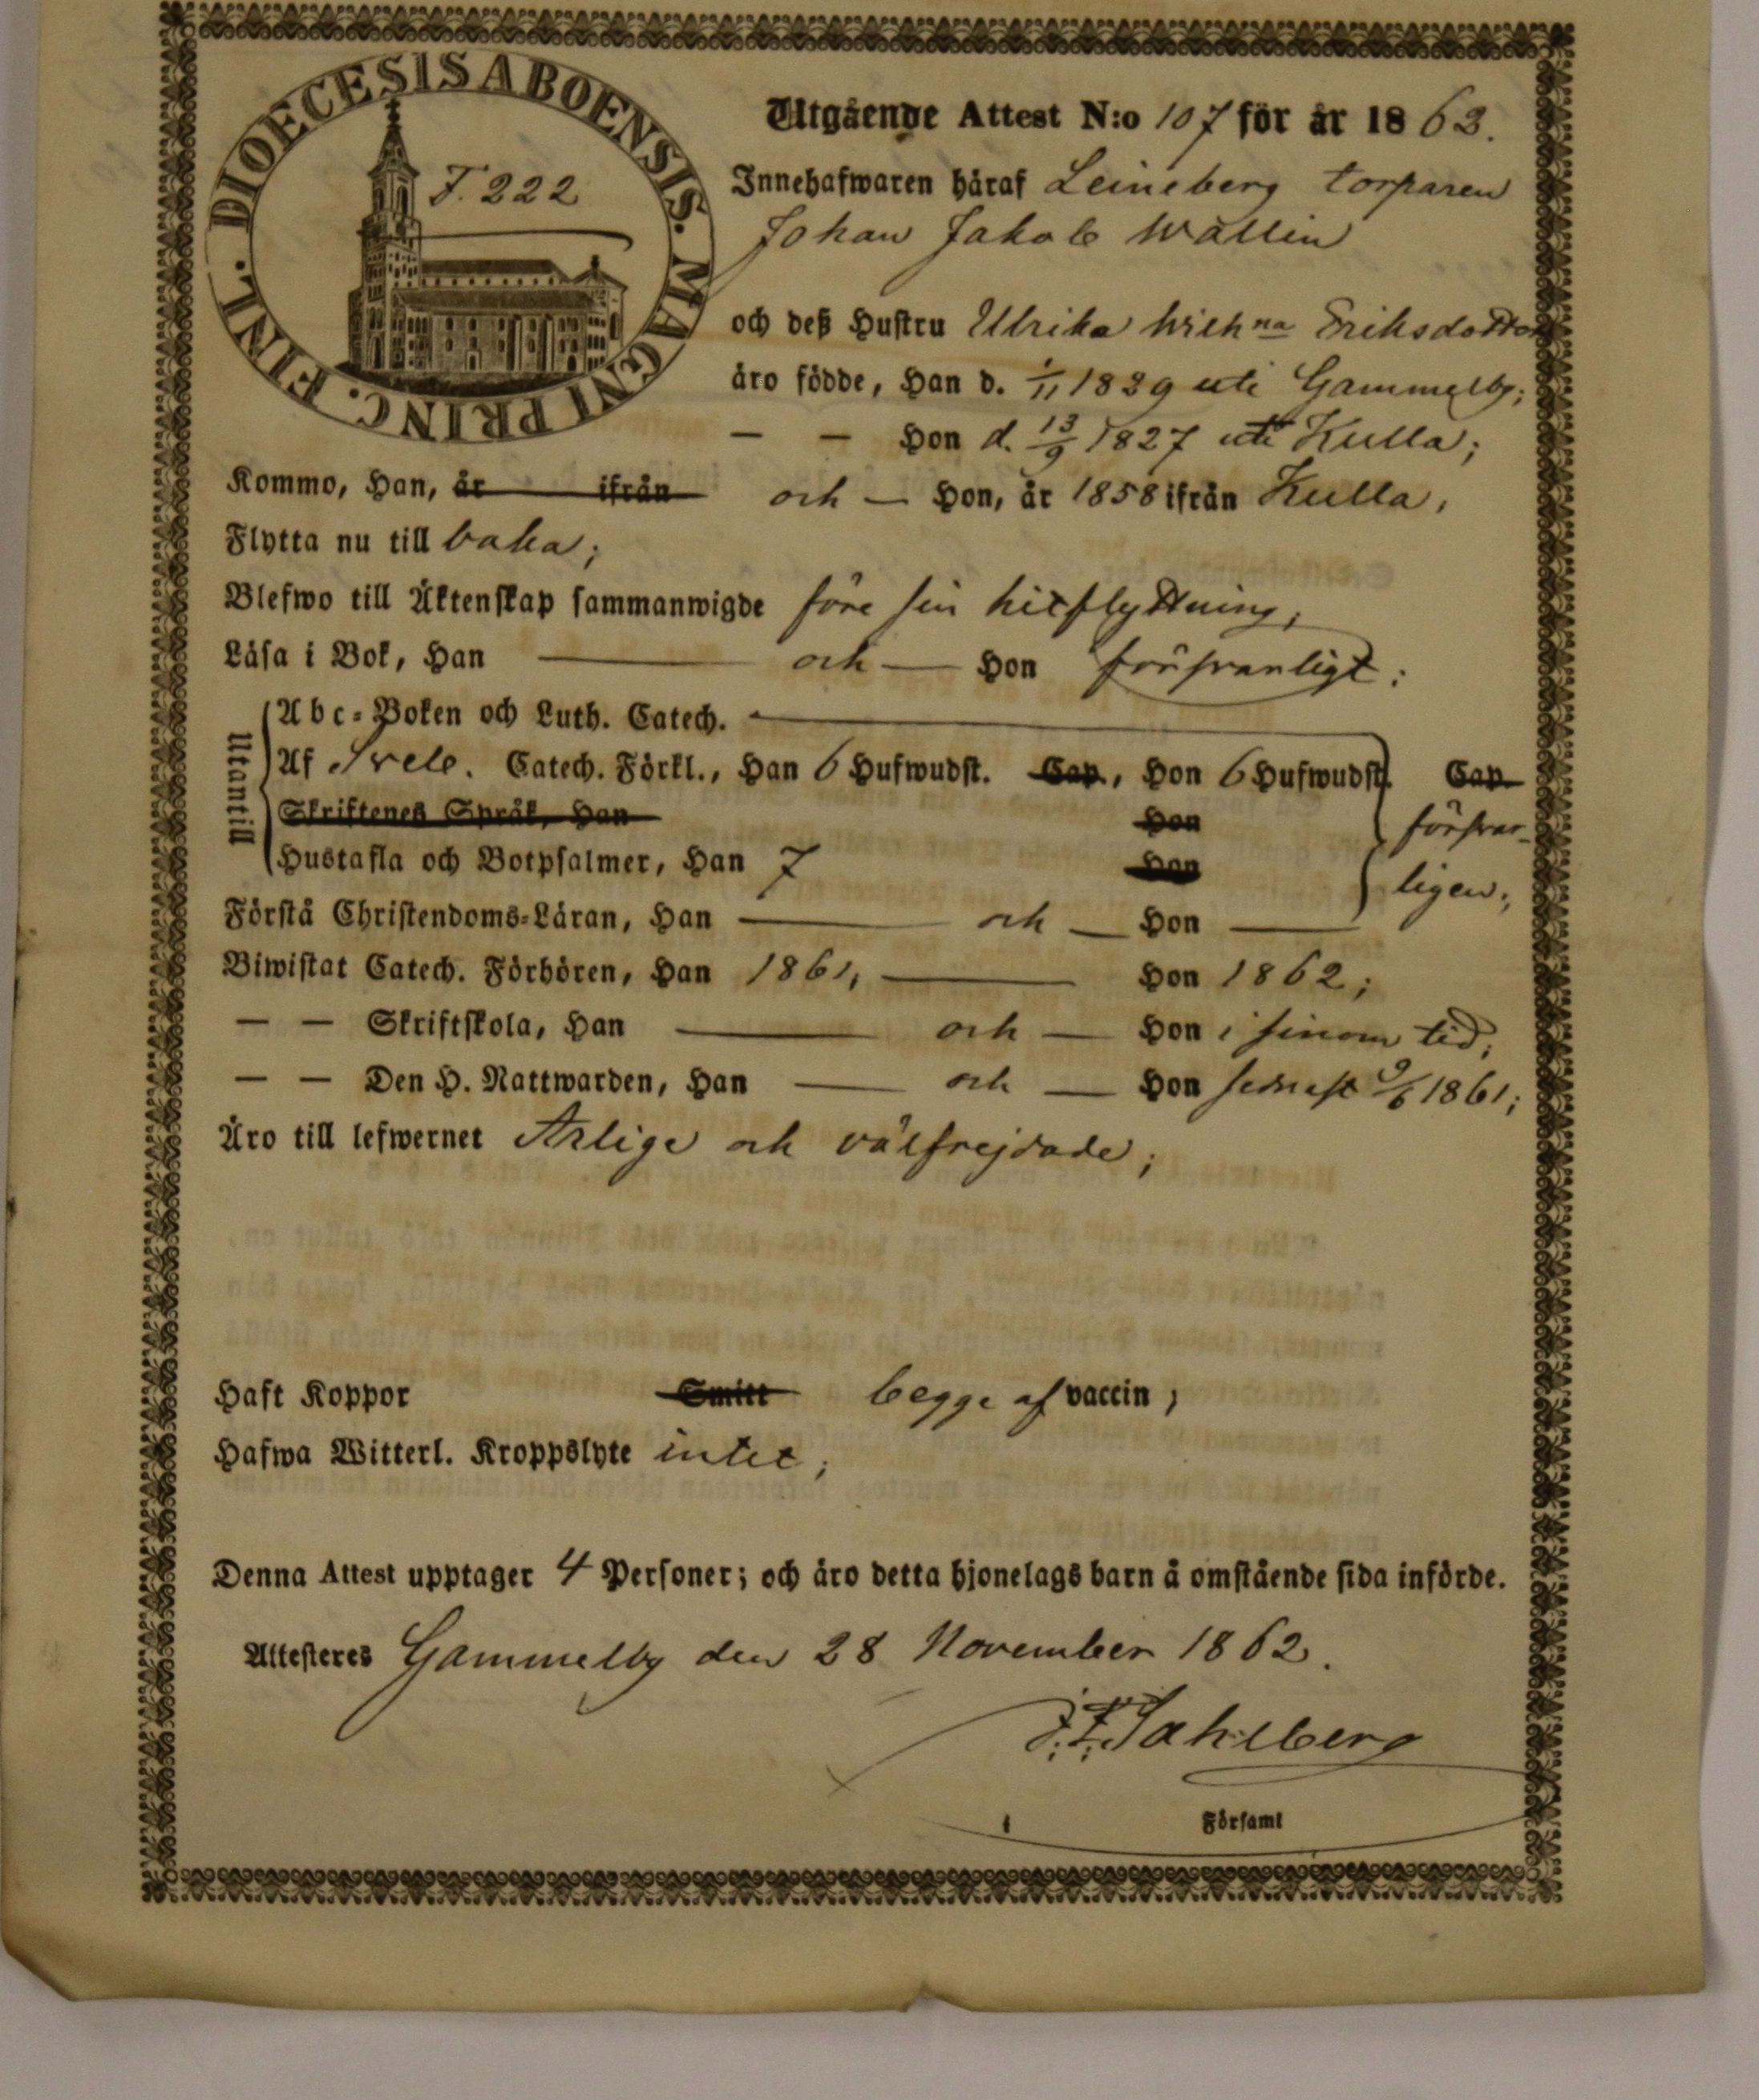 DIOECESIS ABOENSIS. MAGNI PRINC. FINL.
F. 222
Utgående Attest N:o 107 för år 1862.
Innehafwaren häraf Leineberg torparen
Johan Jakob Wallin
och deß Hustru Ulrika Wilhna Eriksdotter
äro födde, Han d. 1/11 1829 uti Gammelby;
— — Hon d. 13/9 1827 uti Kulla;
Kommo, Han, år ifrån och — Hon, år 1858 ifrån Kulla,
Flytta nu till baka;
Blefwo till Äktenskap sammanwigde före sin hitflyttning;
Läsa i Bok, Han — och — Hon försvarligt;
Utantill
Abc-Boken och Luth. Catech.
Af Sveb. Catech. Förkl., Han 6 Hufwudst. Cap., Hon 6 Hufwudst. Cap.
Skriftenes Språk, Han Hon försvar-
Hustafla och Botpsalmer, Han 7 Hon ligen;
Förstå Christendoms-Läran, Han — och — Hon —
Biwistat Catech. Förhören, Han 1861, — Hon 1862;
— — Skriftskola, Han — och — Hon i sinom tid;
— — Den H. Nattwarden, Han — och — Hon sednast 9/6 1861;
Äro till lefwernet Ärlige och välfrejdade;
Haft Koppor Smitt begge af vaccin;
Hafwa Witterl. Kroppslyte intet;
Denna Attest upptager 4 Personer; och äro detta hjonelags barn å omstående sida införde.
Attesteres Gammelby den 28 November 1862.
Sahlberg
i Församl